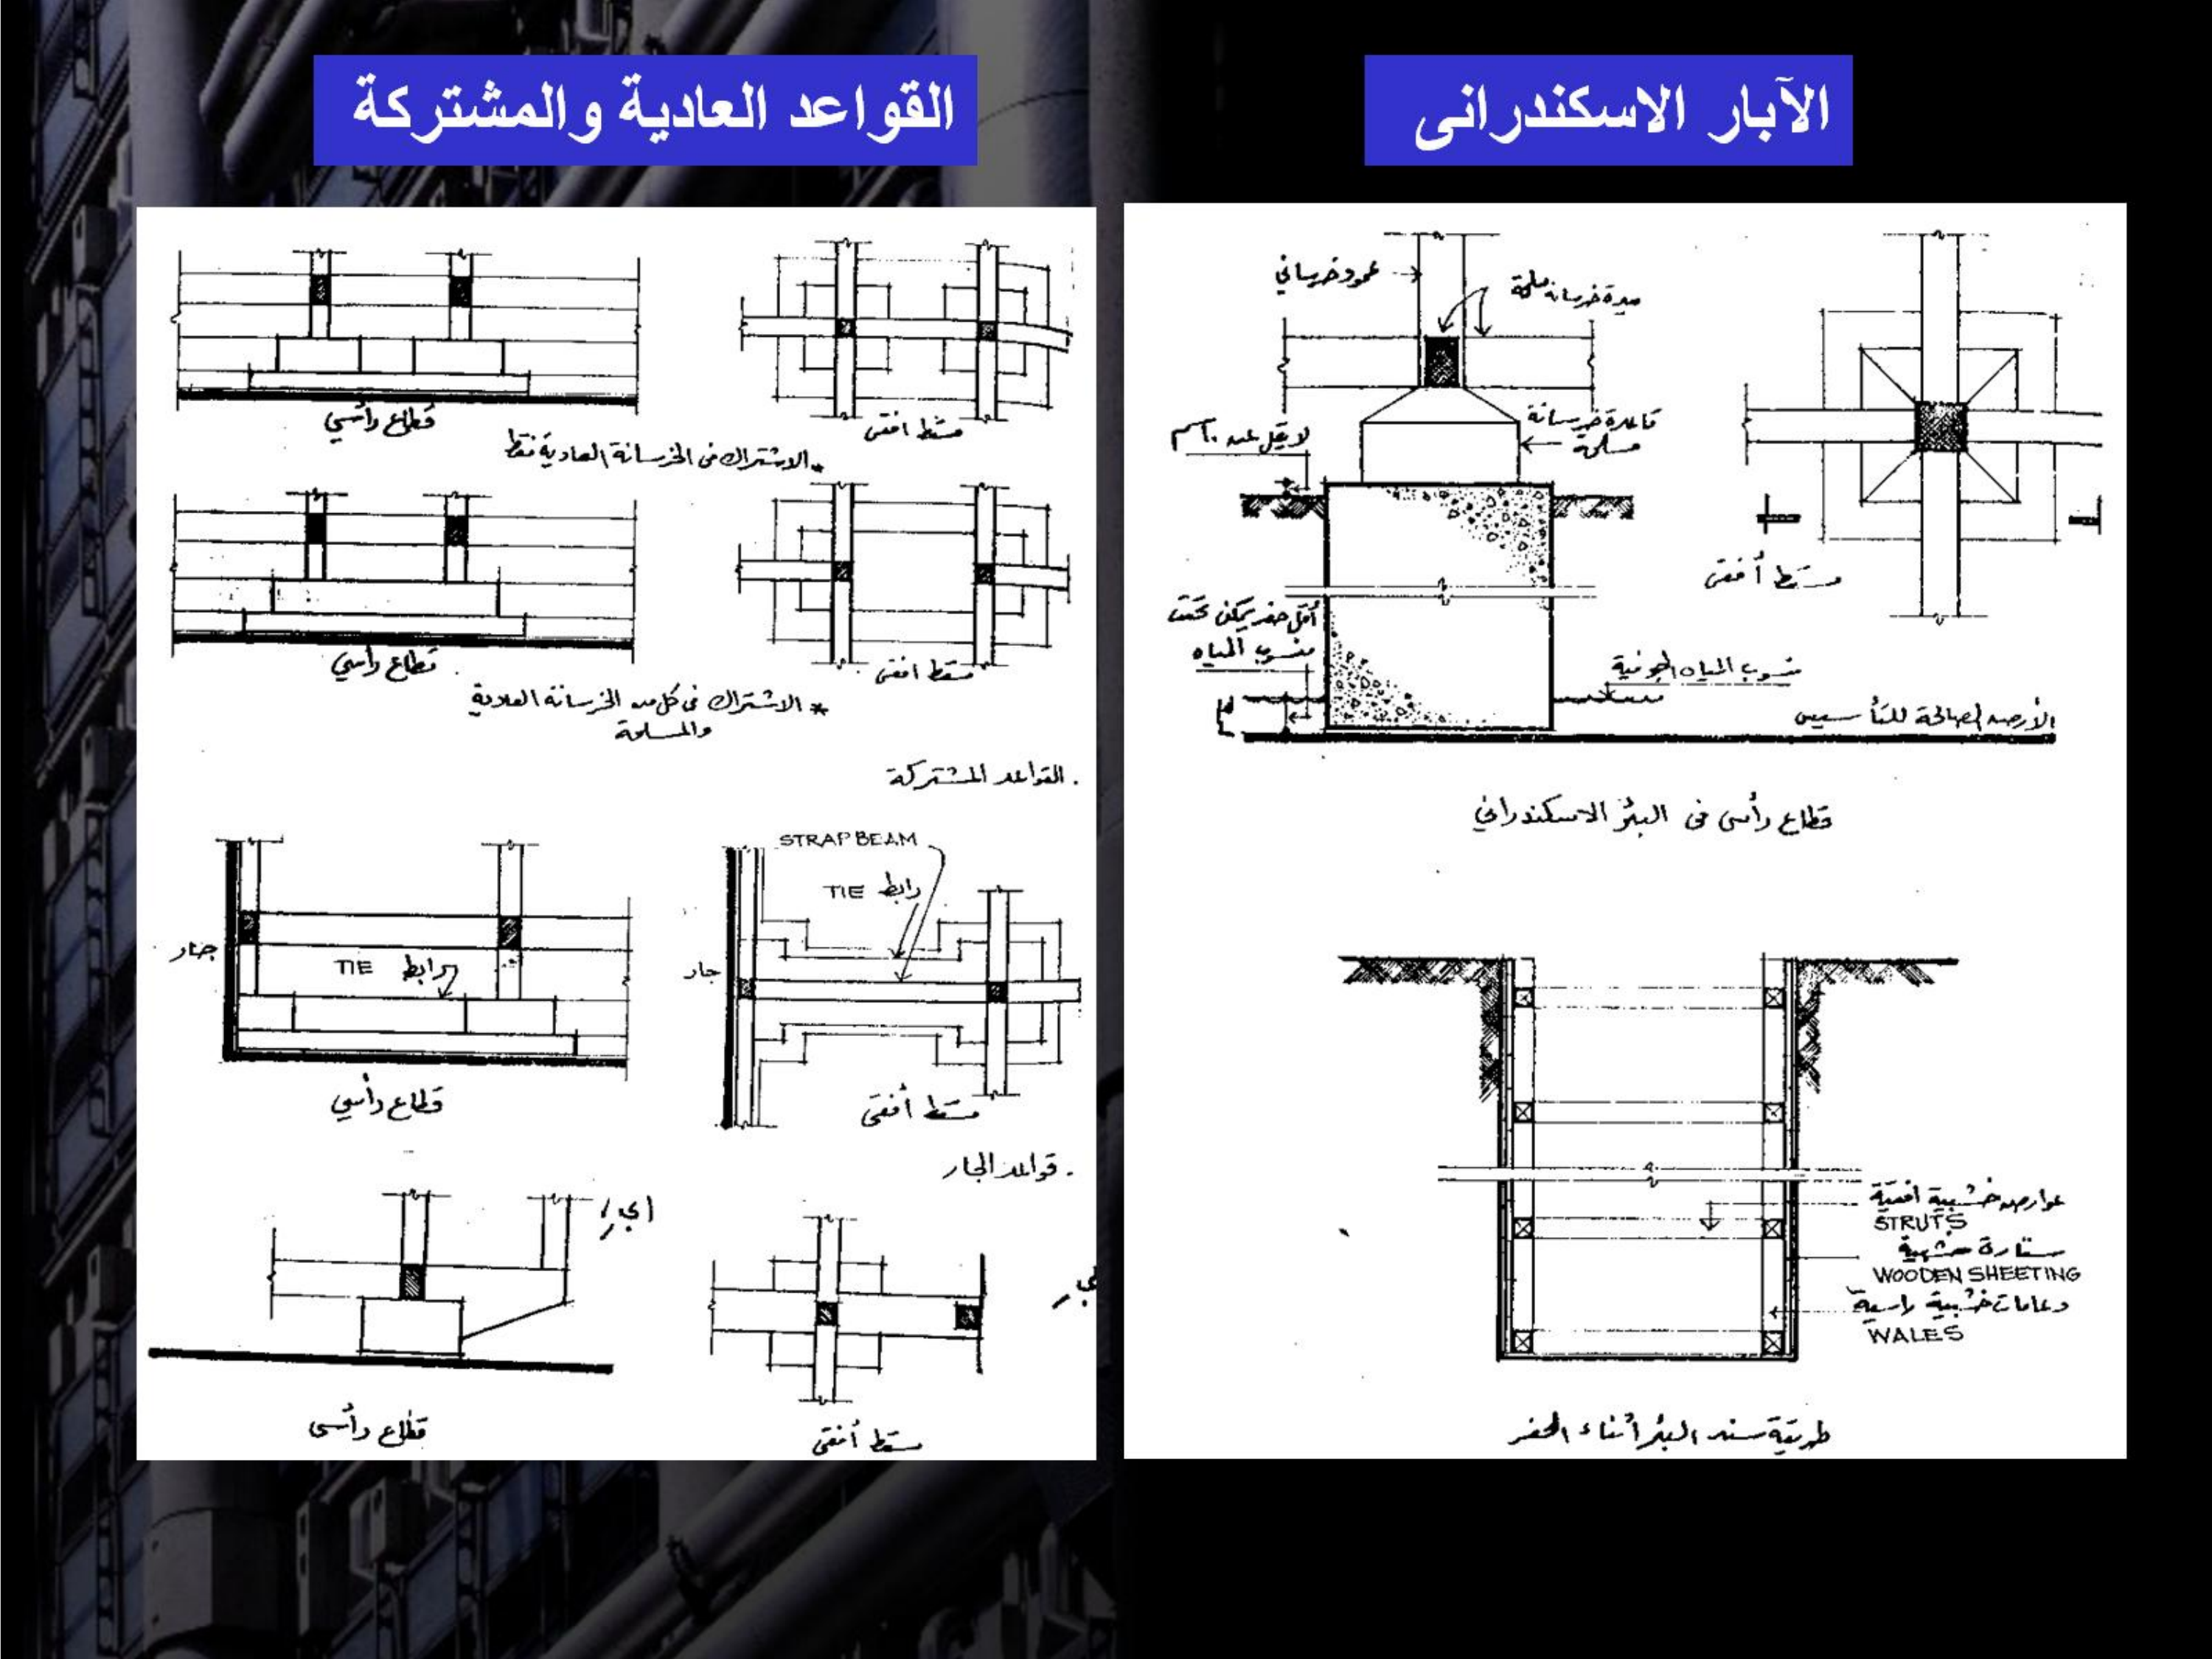 الآبار الاسكندرانى
القواعد العادية والمشتركة
عمود خرساني
ميدة خرسانة مسلحة
قاعدة خرسانة
مسلحة
لا يقل عن ١٠سم
مسقط أفقى
أقل حفر يمكن تحت
منسوب المياه
منسوب المياه الجوفية
الأرض الصالحة للتأسيس
قطاع رأسى فى البئر الاسكندراني
عوارض خشبية افقية
STRUTS
ستارة خشبية
WOODEN SHEETING
دعامات خشبية رأسية
WALES
طريقة سند البئر أثناء الحفر
قطاع رأسي
مسقط افقى
* الاشتراك فى الخرسانة العادية فقط
قطاع رأسي
مسقط افقى
* الاشتراك فى كل من الخرسانة العادية
والمسلحة
. القواعد المشتركة
STRAP BEAM
TIE رابط
جار
TIE رابط
جار
قطاع رأسي
مسقط أفقى
. قواعد الجار
قطاع رأسى
مسقط أفقى